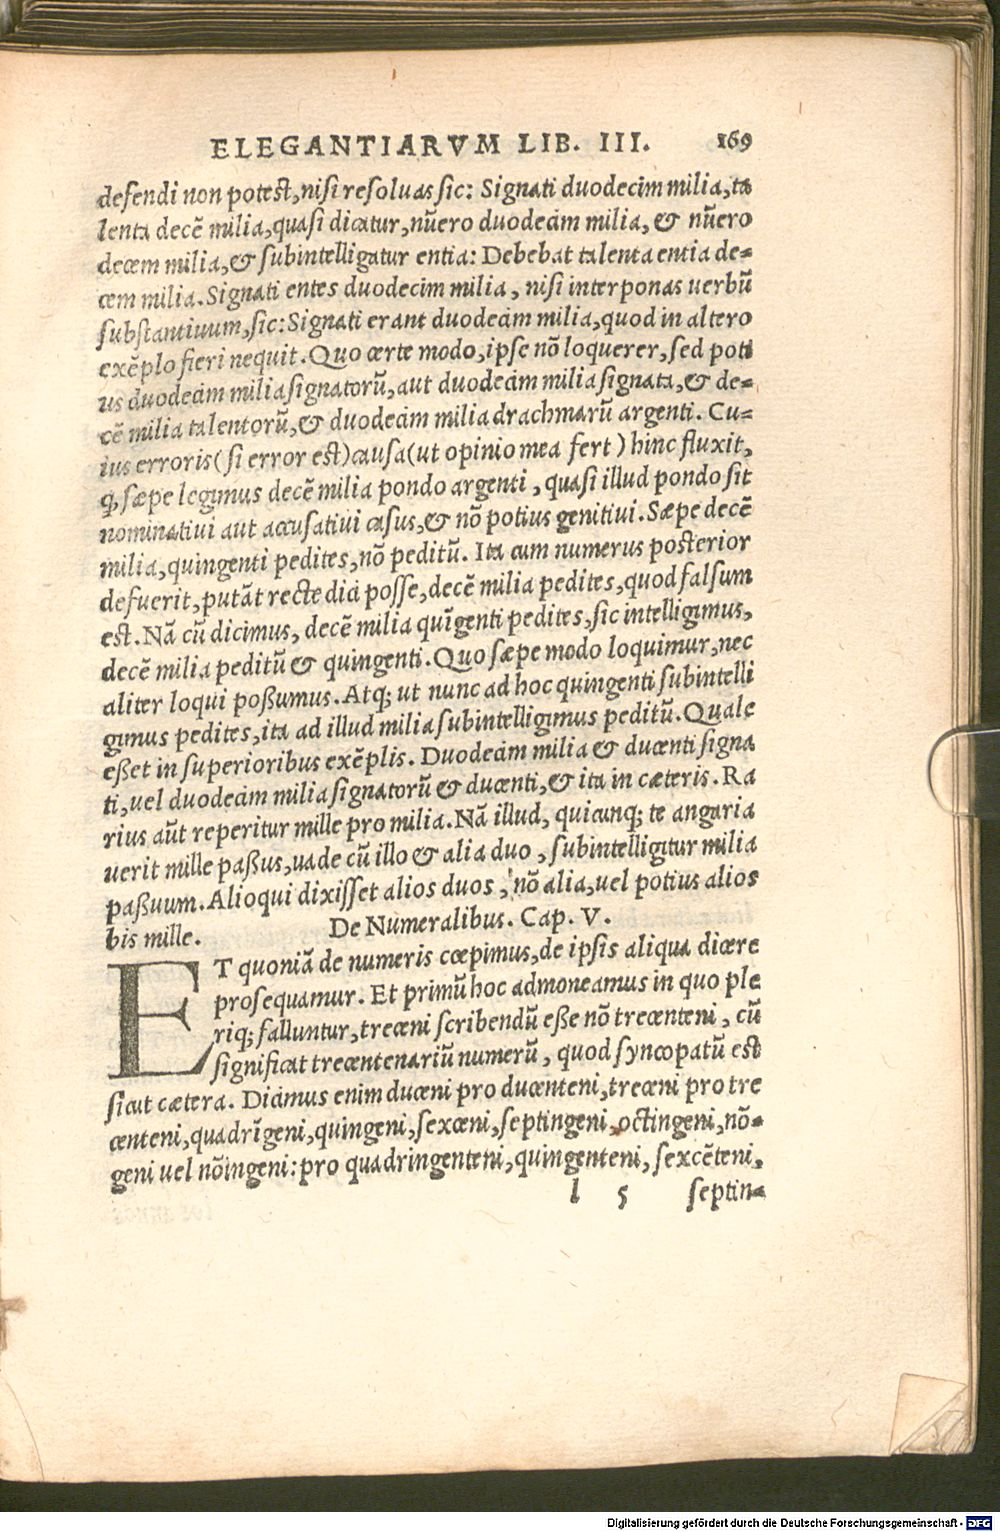 ELEGANTIARVM LIB. III. 169
defendi non potest, nisi resoluas sic: Signati duodecim milia, ta
lenta decē milia, quasi dicatur, nūero duodecim milia, & nūero
decem milia, & subintelligatur entia: Debebat talenta entia de=
cem milia. Signati entes duodecim milia, nisi interponas uerbū
substantiuum, sic: Signati erant duodecim milia, quod in altero
exēplo fieri nequit. Quo certe modo, ipse nō loquerer, sed poti
us duodecim milia signatorū, aut duodecim milia signata, & de=
cē milia talentorū, & duodecim milia drachmarū argenti. Cu=
ius erroris (si error est) causa (ut opinio mea fert) hinc fluxit,
q̃ sæpe legimus decē milia pondo argenti, quasi illud pondo sit
nominatiui aut accusatiui casus, & nō potius genitiui. Sæpe decē
milia, quingenti pedites, nō peditū. Ita cum numerus posterior
defuerit, putāt recte dici posse, decē milia pedites, quod falsum
est. Nā cū dicimus, decē milia quīgenti pedites, sic intelligimus,
decē milia peditū & quingenti. Quo sæpe modo loquimur, nec
aliter loqui poßumus. Atq; ut nunc ad hoc quingenti subintelli
gimus pedites, ita ad illud milia subintelligimus peditū. Quale
eßet in superioribus exēplis. Duodecim milia & ducenti signa
ti, uel duodecim milia signatorū & ducenti, & ita in cæteris. Ra
rius aūt reperitur mille pro milia. Nā illud, quicunq; te angaria
uerit mille paßus, uade cū illo & alia duo, subintelligitur milia
paßuum. Alioqui dixisset alios duos, nō alia, uel potius alios
bis mille. De Numeralibus. Cap. V.
ET quoniā de numeris cœpimus, de ipsis aliqua dicere
prosequamur. Et primū hoc admoneamus in quo ple
riq; falluntur, treceni scribendū eße nō trecenteni, cū
significat trecentenariū numerū, quod syncopatū est
sicut cætera. Dicimus enim duceni pro ducenteni, treceni pro tre
centeni, quadrīgeni, quingeni, sexceni, septingeni, octingeni, nō=
geni uel nōingeni: pro quadringenteni, quingenteni, sexcēteni,
l 5 septin=
Digitalisierung gefördert durch die Deutsche Forschungsgemeinschaft - DFG